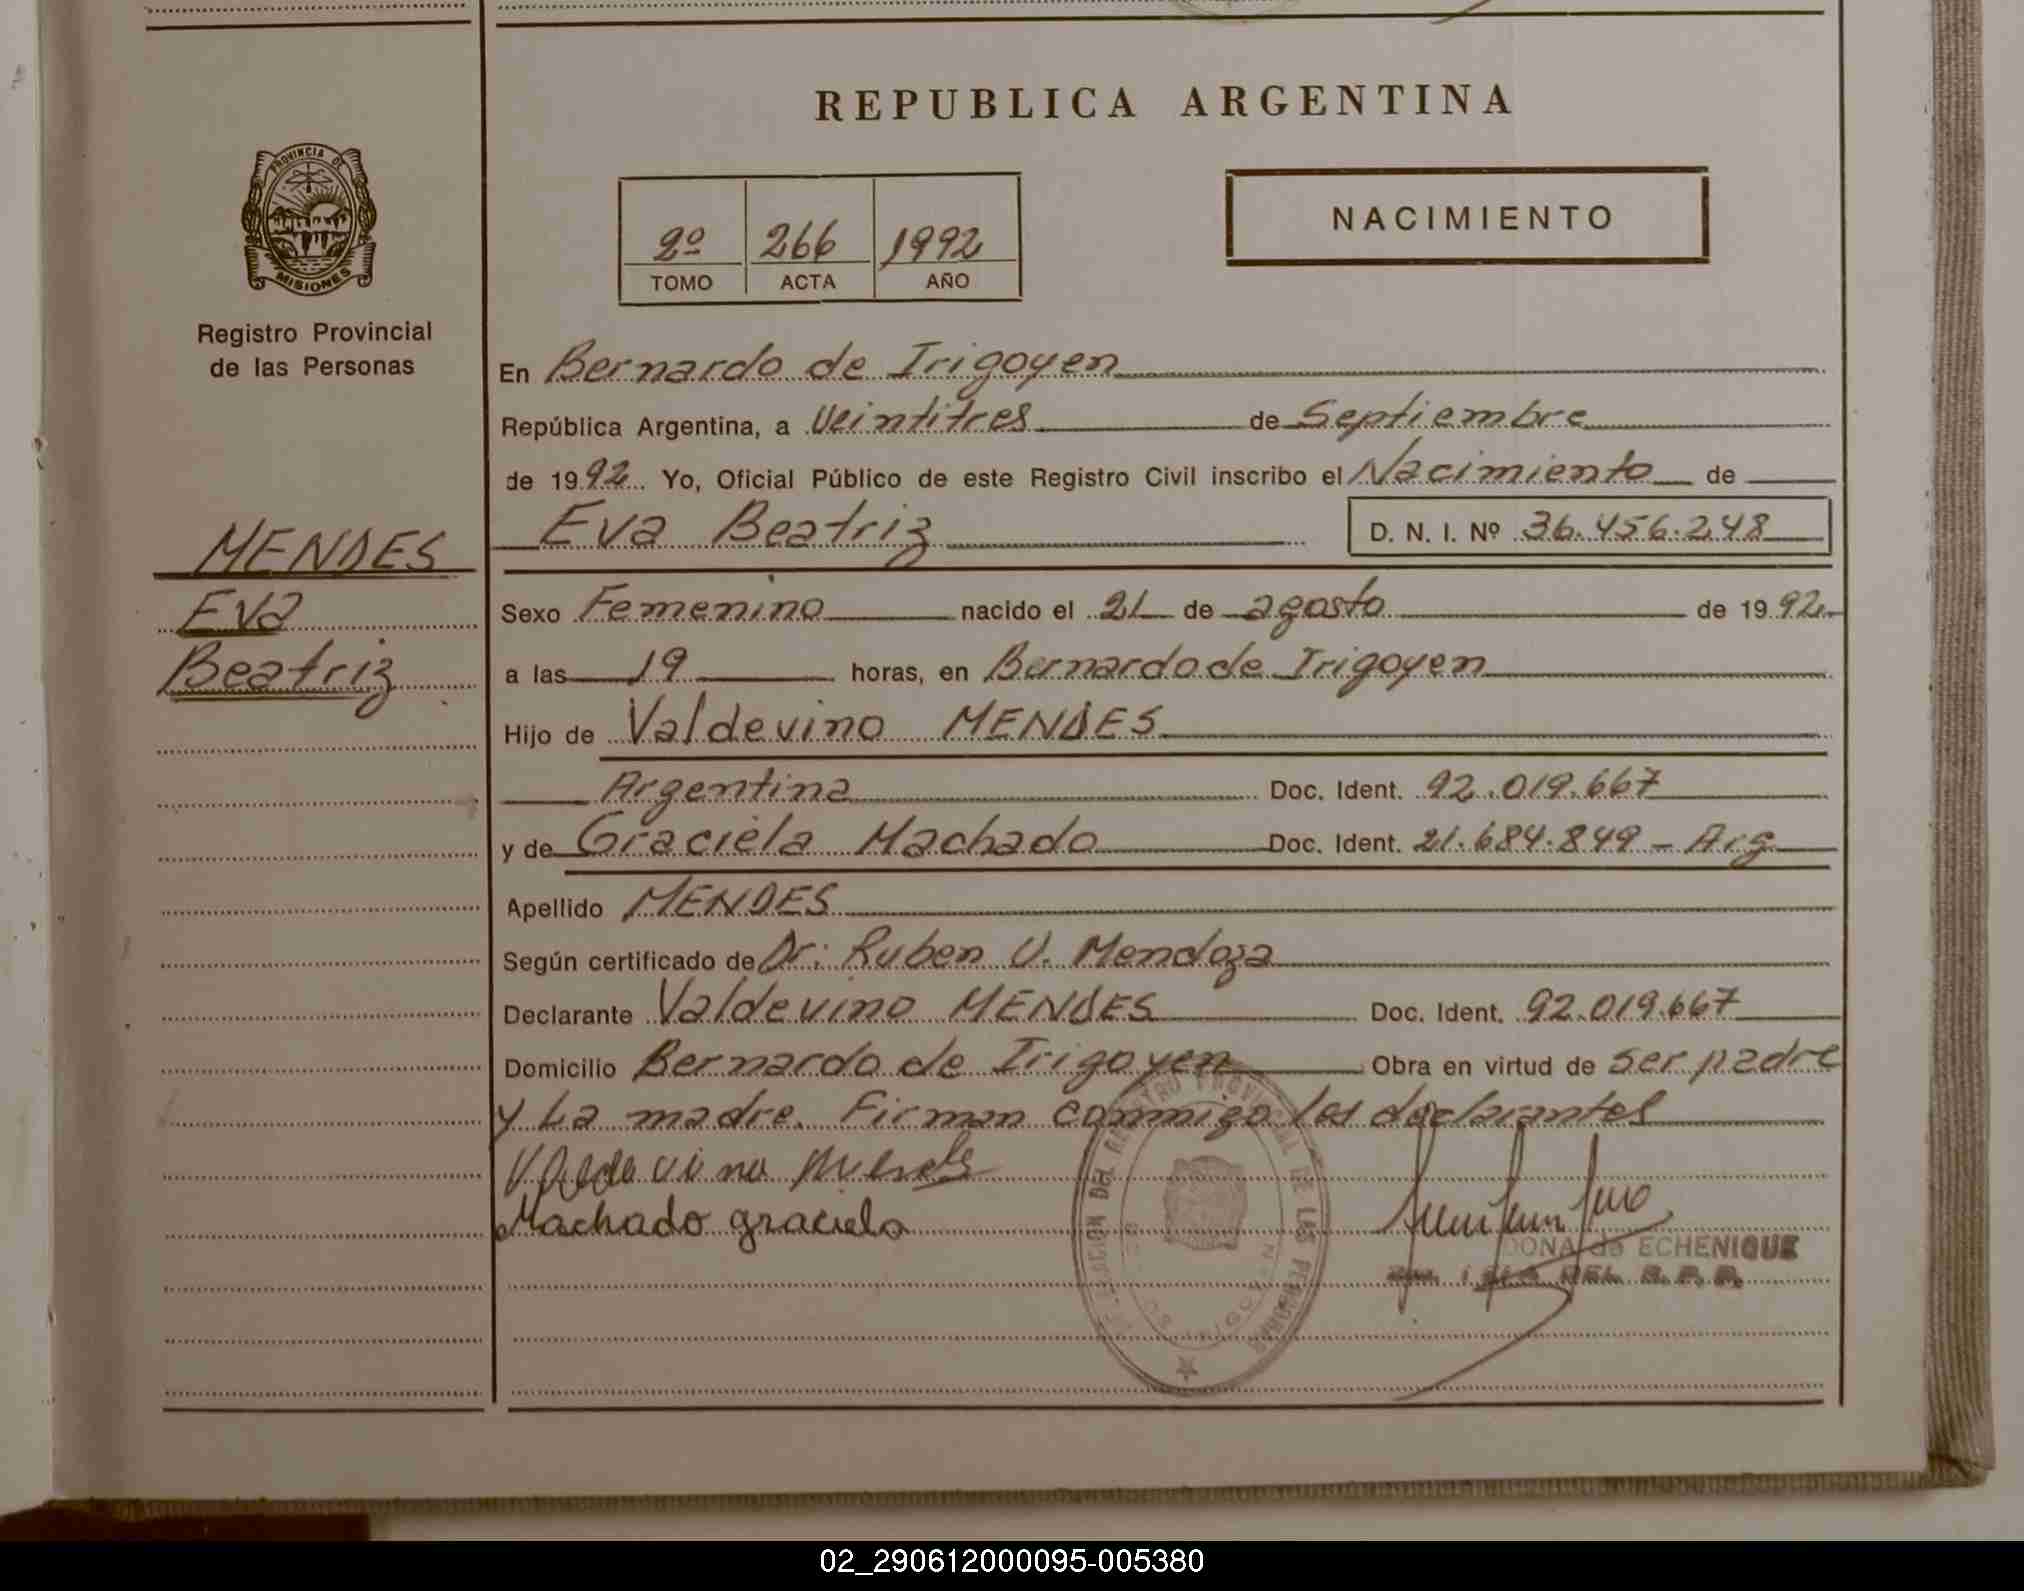 REPUBLICA ARGENTINA
PROVINCIA DE
MISIONES
Registro Provincial
de las Personas
2º 266 1992
TOMO ACTA AÑO
NACIMIENTO
MENDES
Eva
Beatriz
En Bernardo de Irigoyen
República Argentina, a Veintitres de Septiembre
de 1992. Yo, Oficial Público de este Registro Civil inscribo el Nacimiento de
Eva Beatriz D. N. I. Nº 36.456.248
Sexo Femenino nacido el 21 de agosto de 1992
a las 19 horas, en Bernardo de Irigoyen
Hijo de Valdevino MENDES
Argentina Doc. Ident. 92.019.667
y de Graciela Machado Doc. Ident. 21.684.849 - Arg
Apellido MENDES
Según certificado de Dr: Ruben V. Mendoza
Declarante Valdevino MENDES Doc. Ident. 92.019.667
Domicilio Bernardo de Irigoyen Obra en virtud de ser padre
y La madre. Firman conmigo los declarantes
Valdevino Mendes
Machado graciela
DEL REGISTRO PROVINCIAL DE LAS PERSONAS
DONA de ECHENIQUE
DEL R. P. P.
02_290612000095-005380